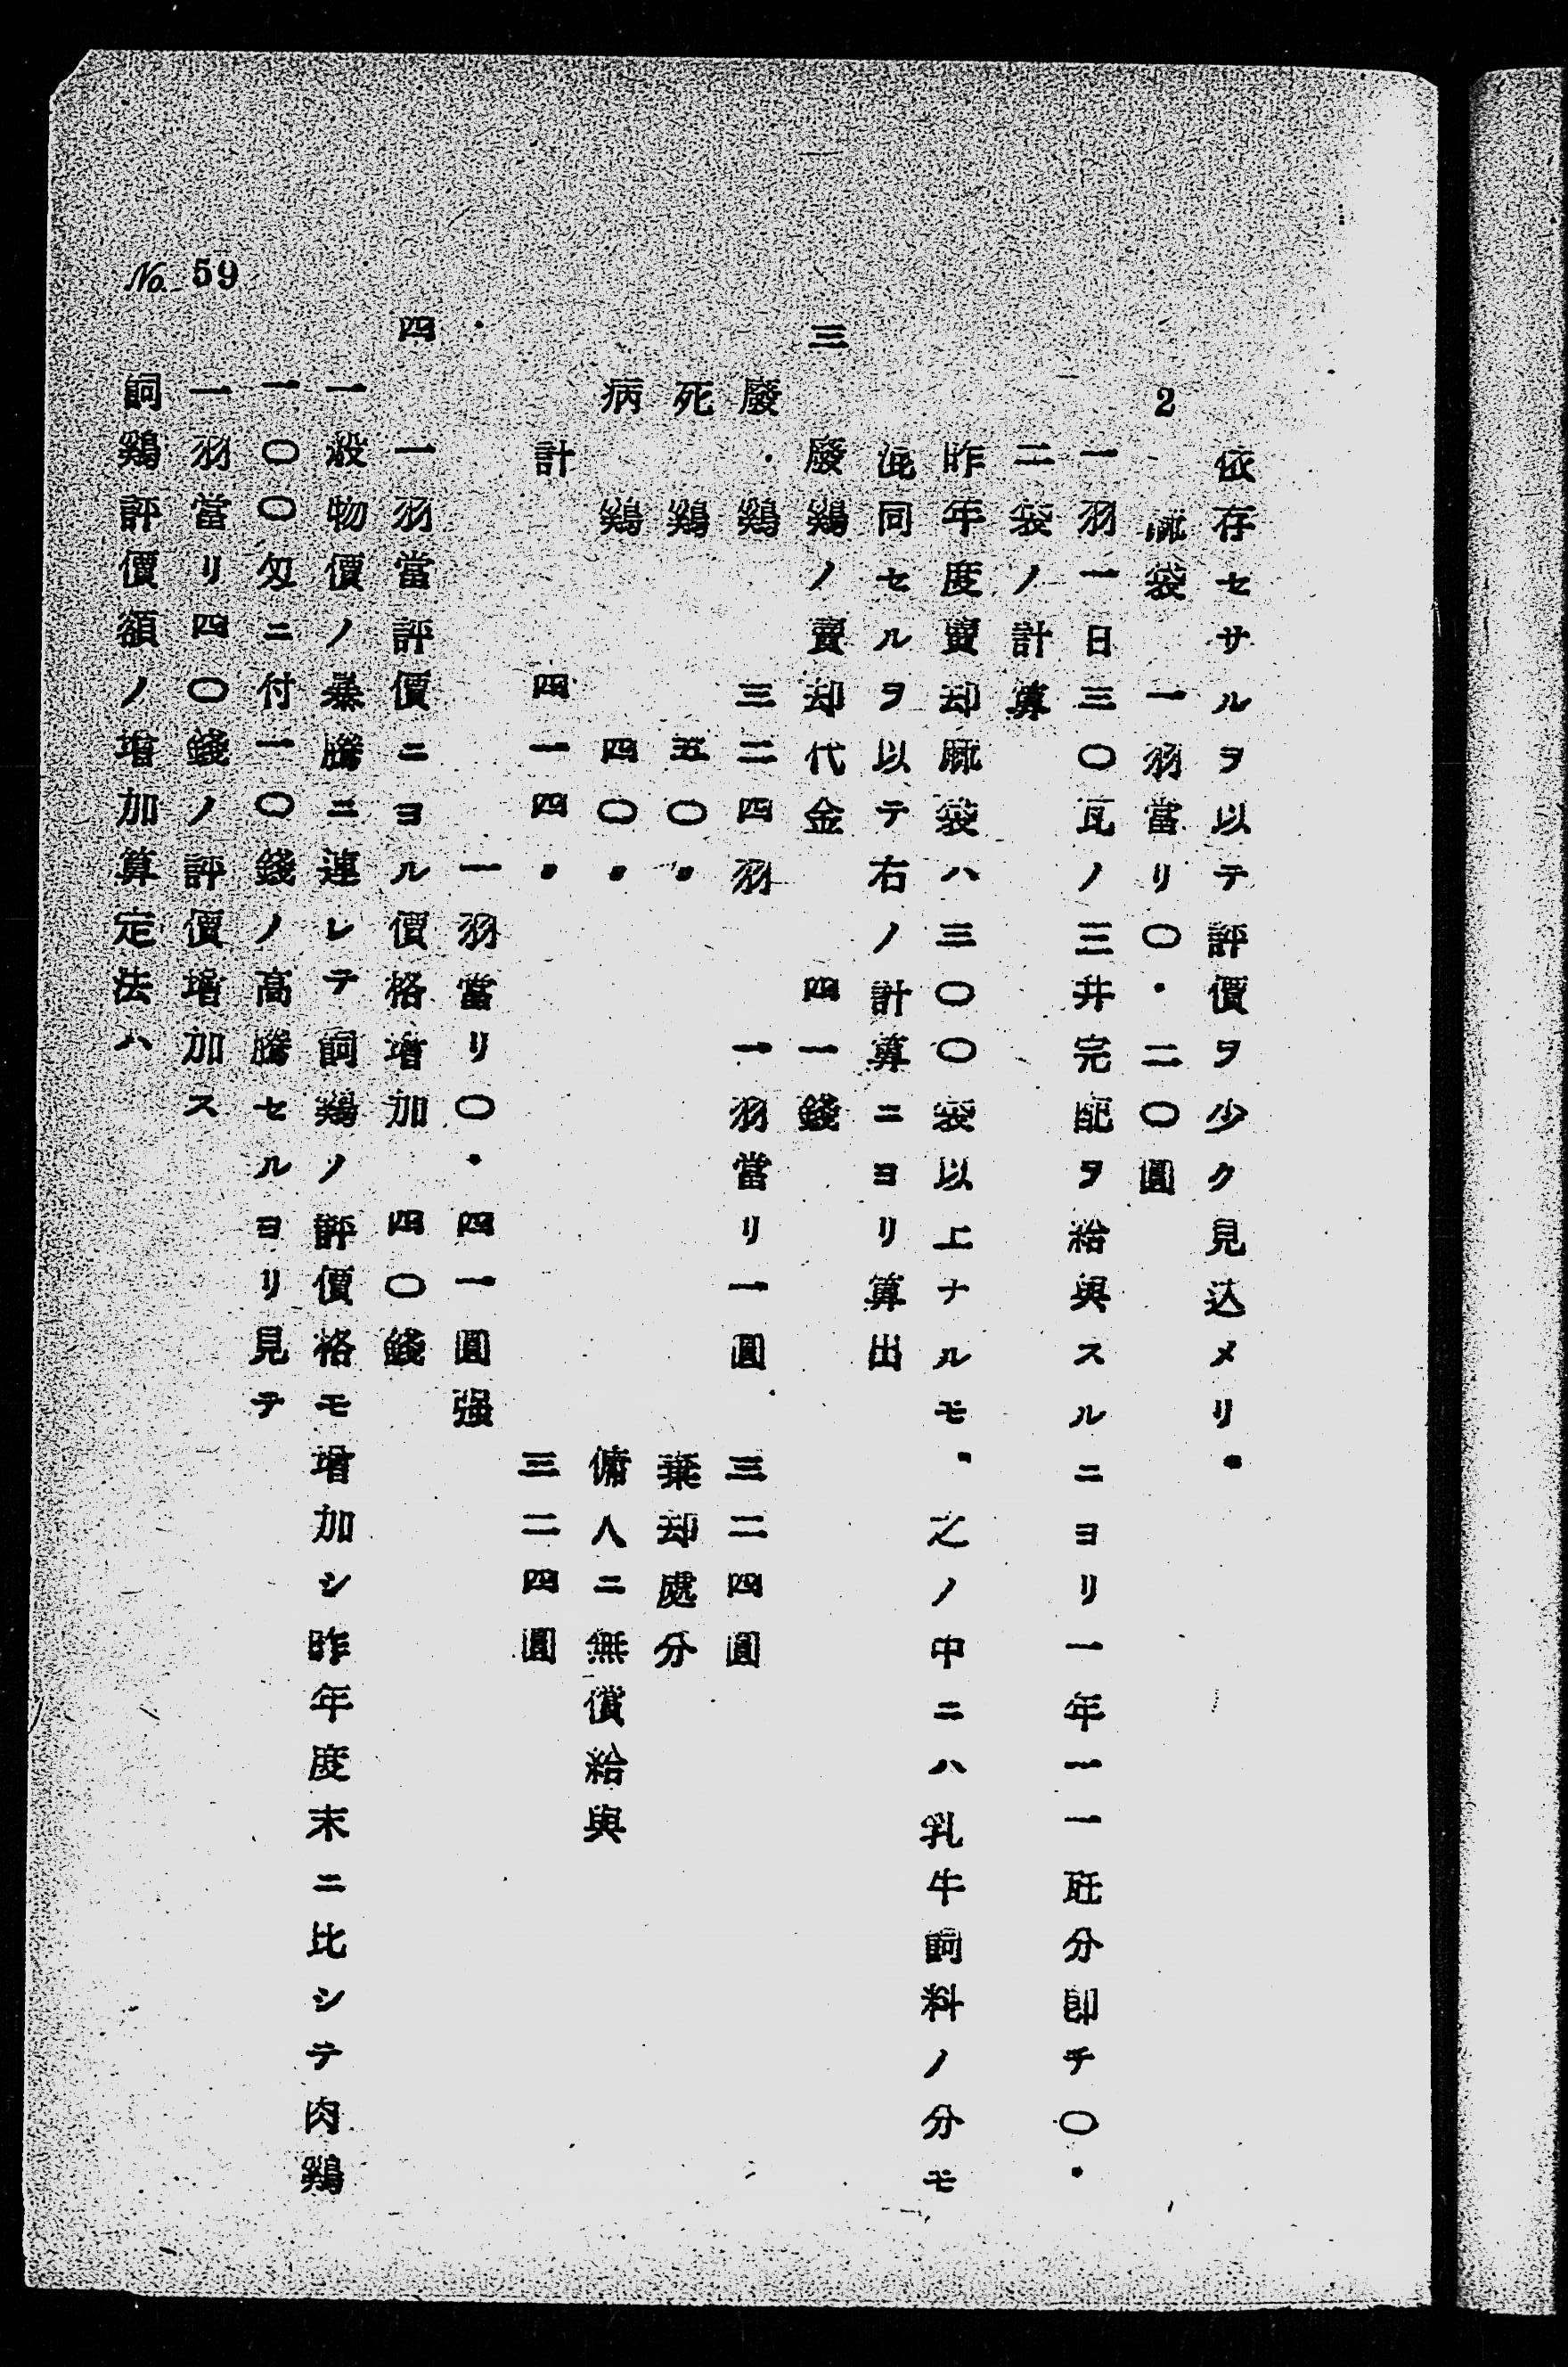 依存セサルヲ以テ評價ヲ少ク見込メリ。
2 麻袋 一羽當リ〇・二〇圓
一羽一日三〇瓦ノ三井完配ヲ給與スルニヨリ一年一一瓩分即チ〇・
二袋ノ計算
昨年度賣却麻袋ハ三〇〇袋以上ナルモ、之ノ中ニハ乳牛飼料ノ分モ
混同セルヲ以テ右ノ計算ニヨリ算出
三 廢鷄ノ賣却代金 四一錢
廢鷄 三二四羽 一羽當リ一圓 三二四圓
死鷄 五〇〃 棄却處分
病鷄 四〇〃 傭人ニ無償給與
計 四一四〃 三二四圓
一羽當リ〇・四一圓强
四 一羽當評價ニヨル價格增加 四〇錢
一般物價ノ暴騰ニ連レテ飼鷄ノ評價格モ增加シ昨年度末ニ比シテ肉鷄
一〇〇匁ニ付一〇錢ノ高騰セルヨリ見テ
一羽當リ四〇錢ノ評價增加ス
飼鷄評價額ノ增加算定法ハ
No. 59